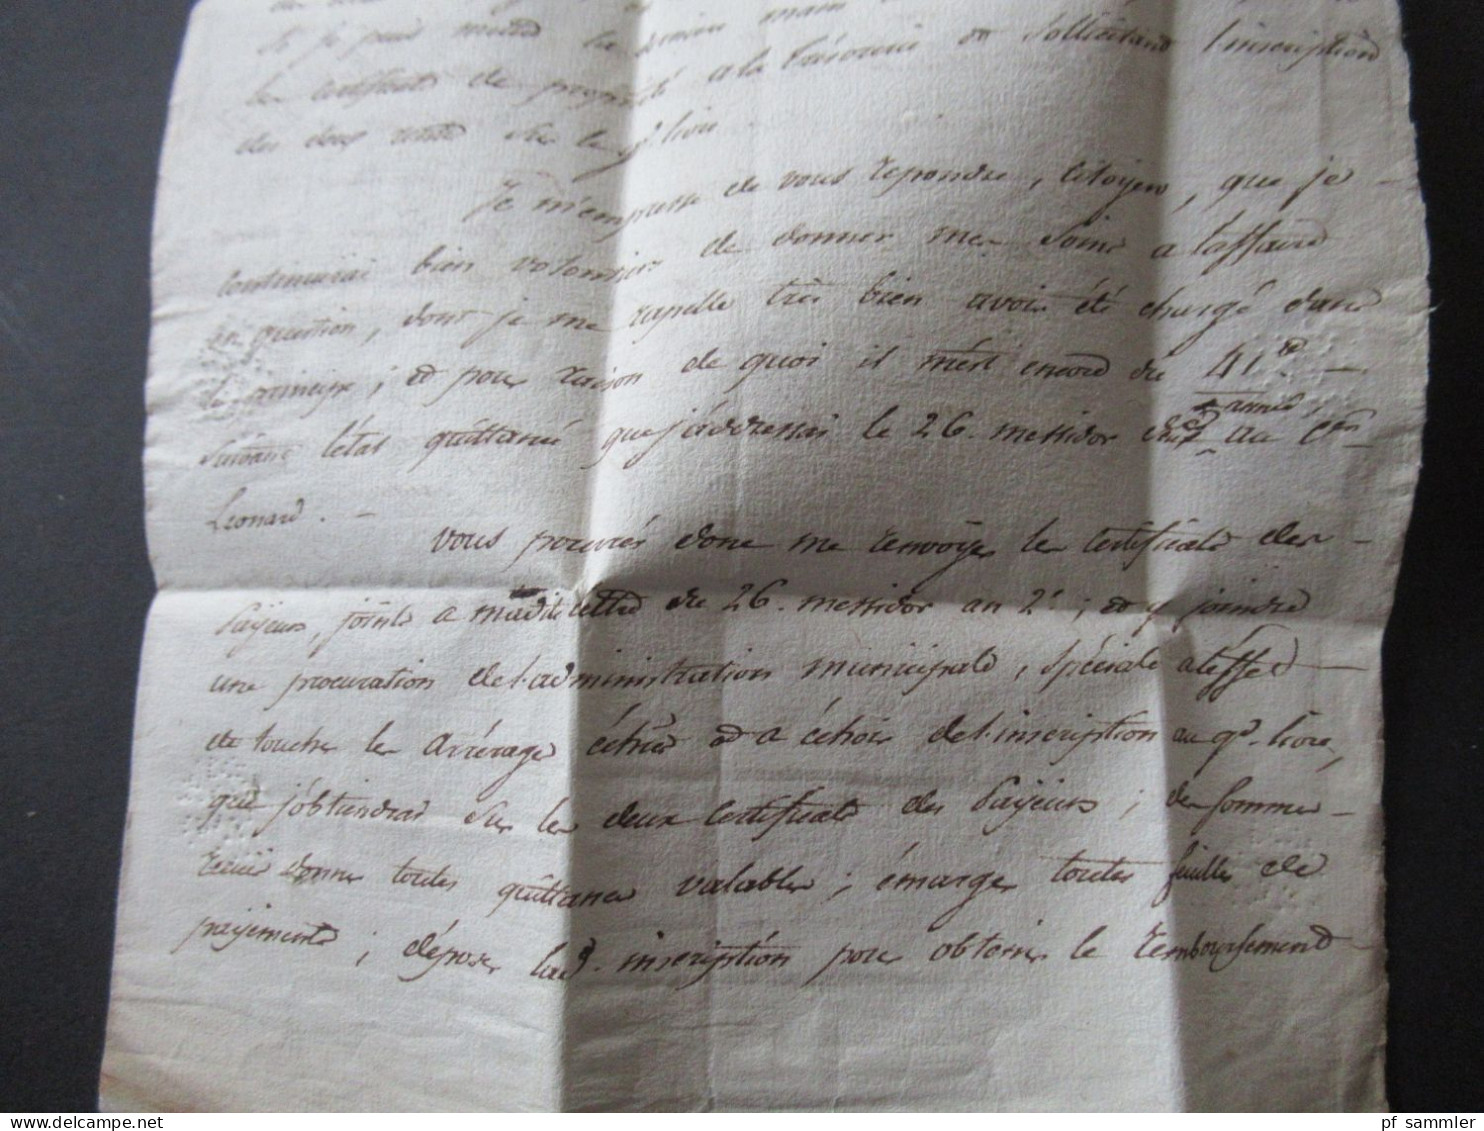 Si je puis mettre la derniere main
les certificats de propriété a la trésorerie et sollicitant l'inscription
des deux rentes sur le g.d livre
Je m'empresse de vous repondre, citoyens, que je
continuerai bien volontiers de donner mes soins a l'affaire
en question, dont je me rapelle très bien avoir été chargé dans
le principe; et pour raison de quoi il m'est encore du 41.tt
suivant l'etat quittancé que j'adressai le 26. messidor au c.en
année
Leonard.
vous pouvés donc me renvoyer les certificats des
payeurs, joints a madite lettre du 26. messidor an 2.; et y joindre
une procuration de l'administration municipale, spéciale a l'effet
de toucher les arrérages échus et a échoir de l'inscription au g.d livre,
que j'obtiendrai sur les deux certificats des payeurs; des sommes
reçues donner toutes quittances valables; émarger toutes feuilles de
payements; déposer lad. inscription pour obtenir le remboursement
pf sammler